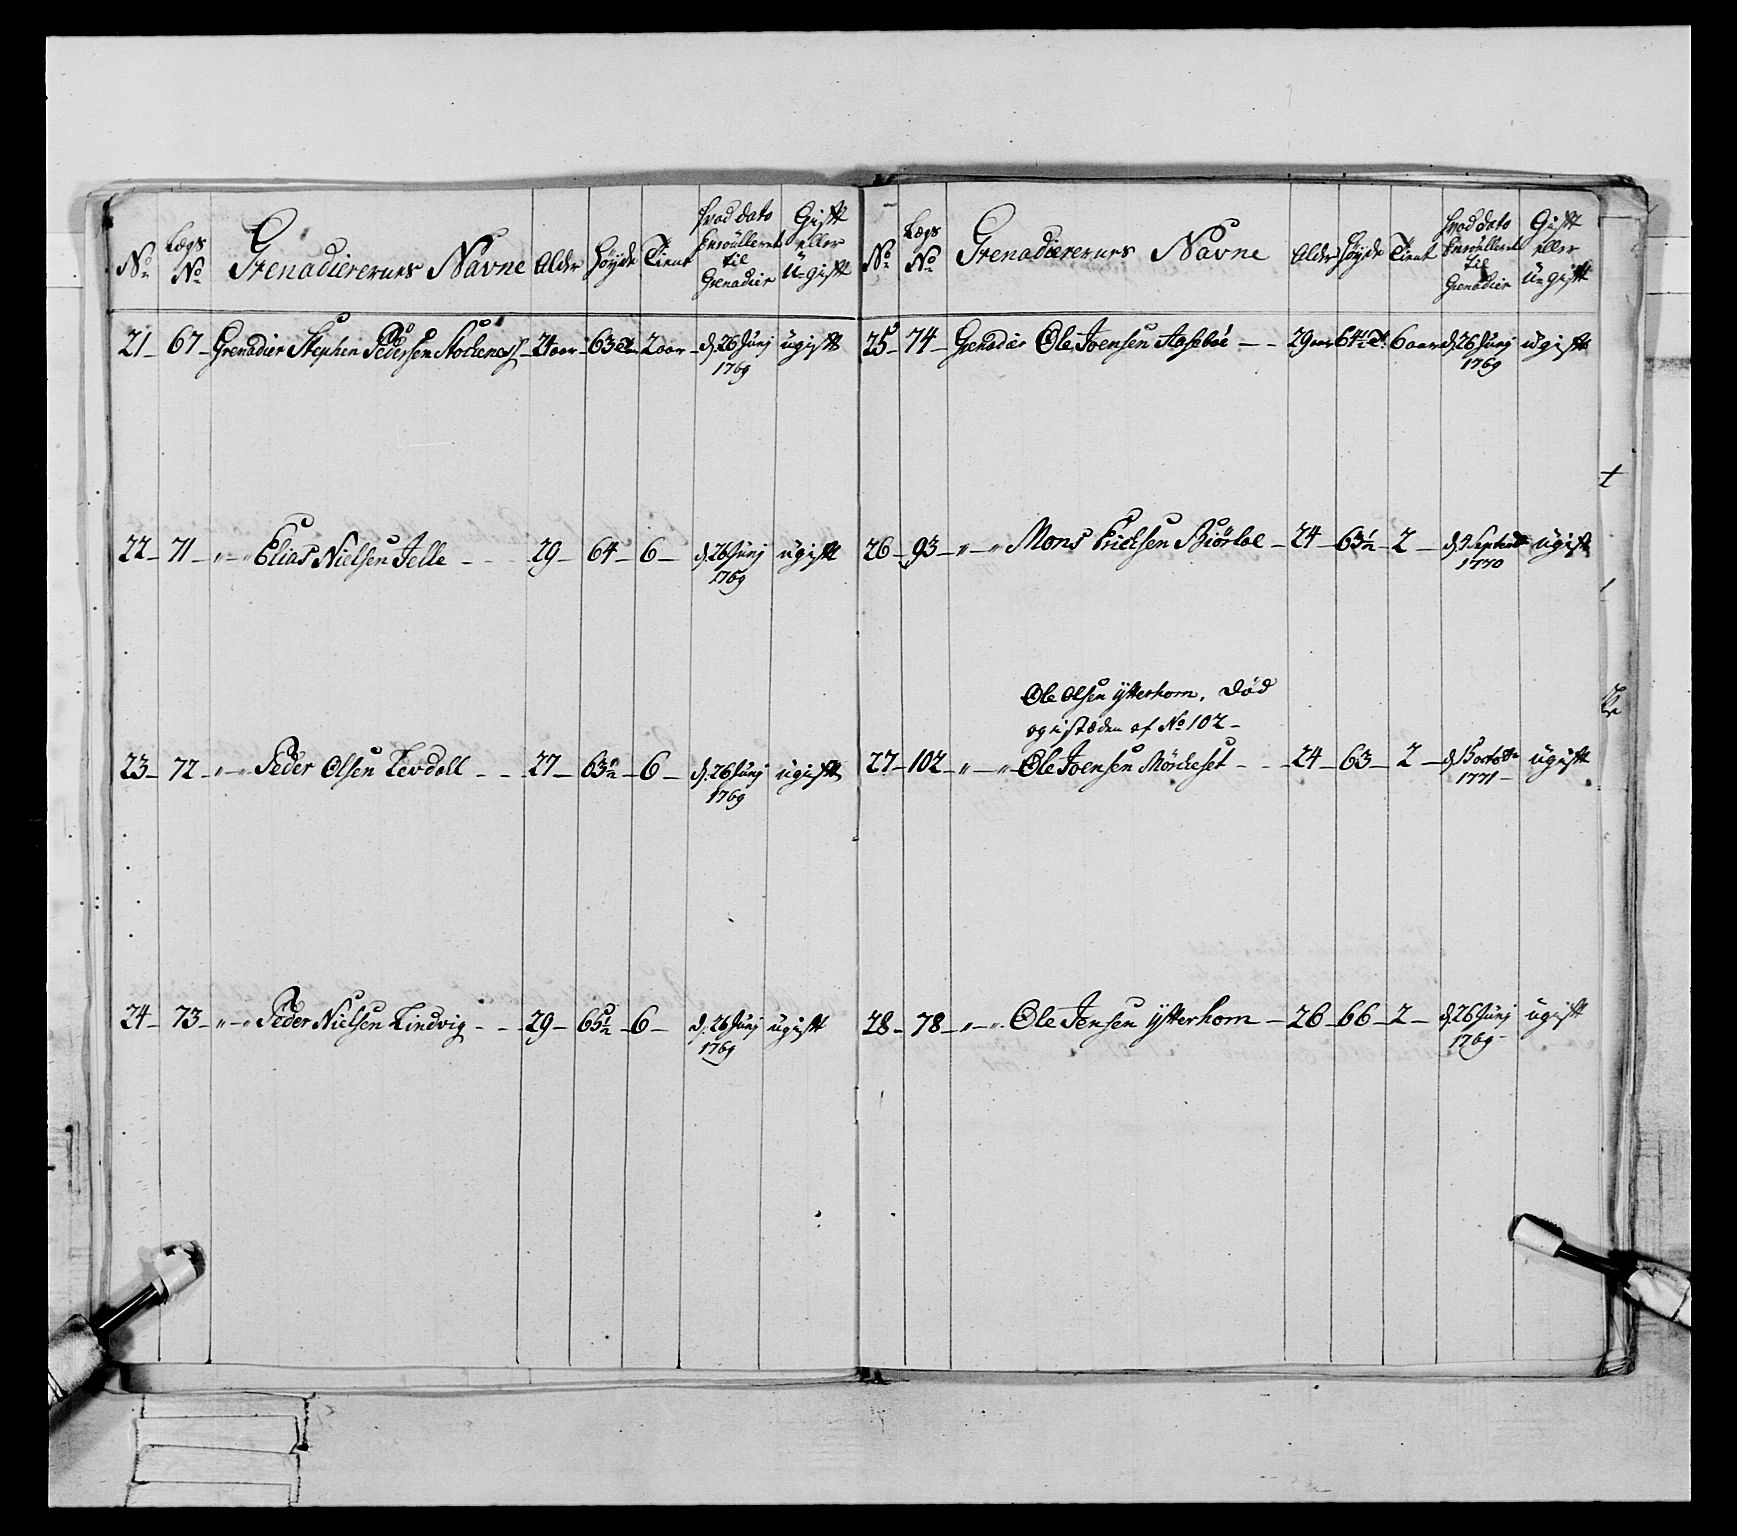 No
Lægs No
Grenadierernes Navne
Alder
Høyde
Tient
hvad dato Enroulleret til Grenadier
Gift eller u-gift
21 67 Grenadier Stephen Pedersen 24 aar 63 2 aar d. 26 Junj 1769 ugift
22 71 " Elias Nielsen Jelle 29 64 6 d. 26 Junj 1769 ugift
23 72 " Peder Olsen Levdall 27 63 6 d. 26 Junj 1769 ugift
24 73 " Peder Nielsen Lindvig 29 65 6 d. 26 Junj 1769 ugift
No
Lægs No
Grenadierernes Navne
Alder
Høyde
Tient
hvad dato Enroulleret til Grenadier
Gift eller u-gift
25 74 Grenadier Ole Joensen Aasebøe 29 aar 64 1/2 T. 6 aar d. 26 Junj 1769 ugift
26 93 " Mons Ericksen 24 63 1/2 2 d. Septembr 1770 ugift
Ole Olsen ytterhorn, død
og i stæden af No 102
27 102 " Ole Joensen Mørcheset 24 63 2 d. octobr 1771 ugift
28 78 " Ole Jensen ytterhorn 26 66 2 d. 26 Junj 1769 ugift